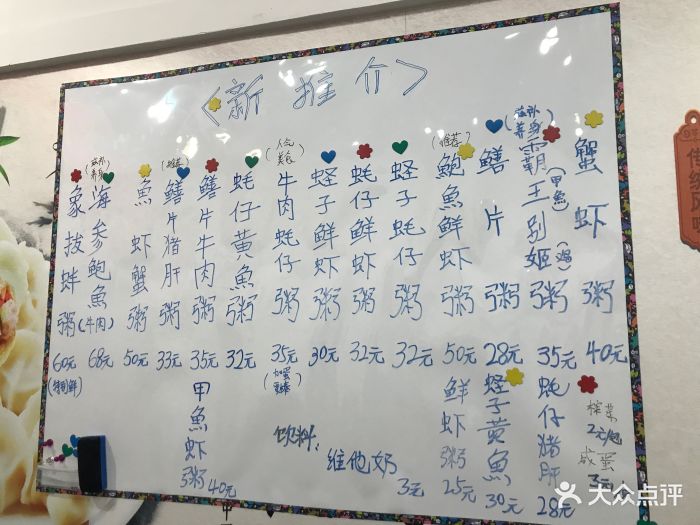 〈新推介〉
蟹虾粥 40元
(滋补养身)
霸王别姬粥 (甲魚) (鸡) 35元
鳝片粥 28元
(推荐)
鲍魚鲜虾粥 50元
蛏子蚝仔粥 32元
蚝仔鲜虾粥 32元
蛏子鲜虾粥 30元
牛肉蚝仔粥 35元
蚝仔黃魚粥 32元
鳝片牛肉粥 35元
鳝片猪肝粥 33元
魚虾蟹粥 50元
海参鲍魚(牛肉) 68元
象拔蚌粥 60元
(特别鲜)
榨菜 2元/包
咸蛋 3元
蚝仔猪肝 28元
蛏子黃魚 30元
鲜虾粥 25元
饮料: 维他奶 3元
甲魚虾粥 40元
大众点评